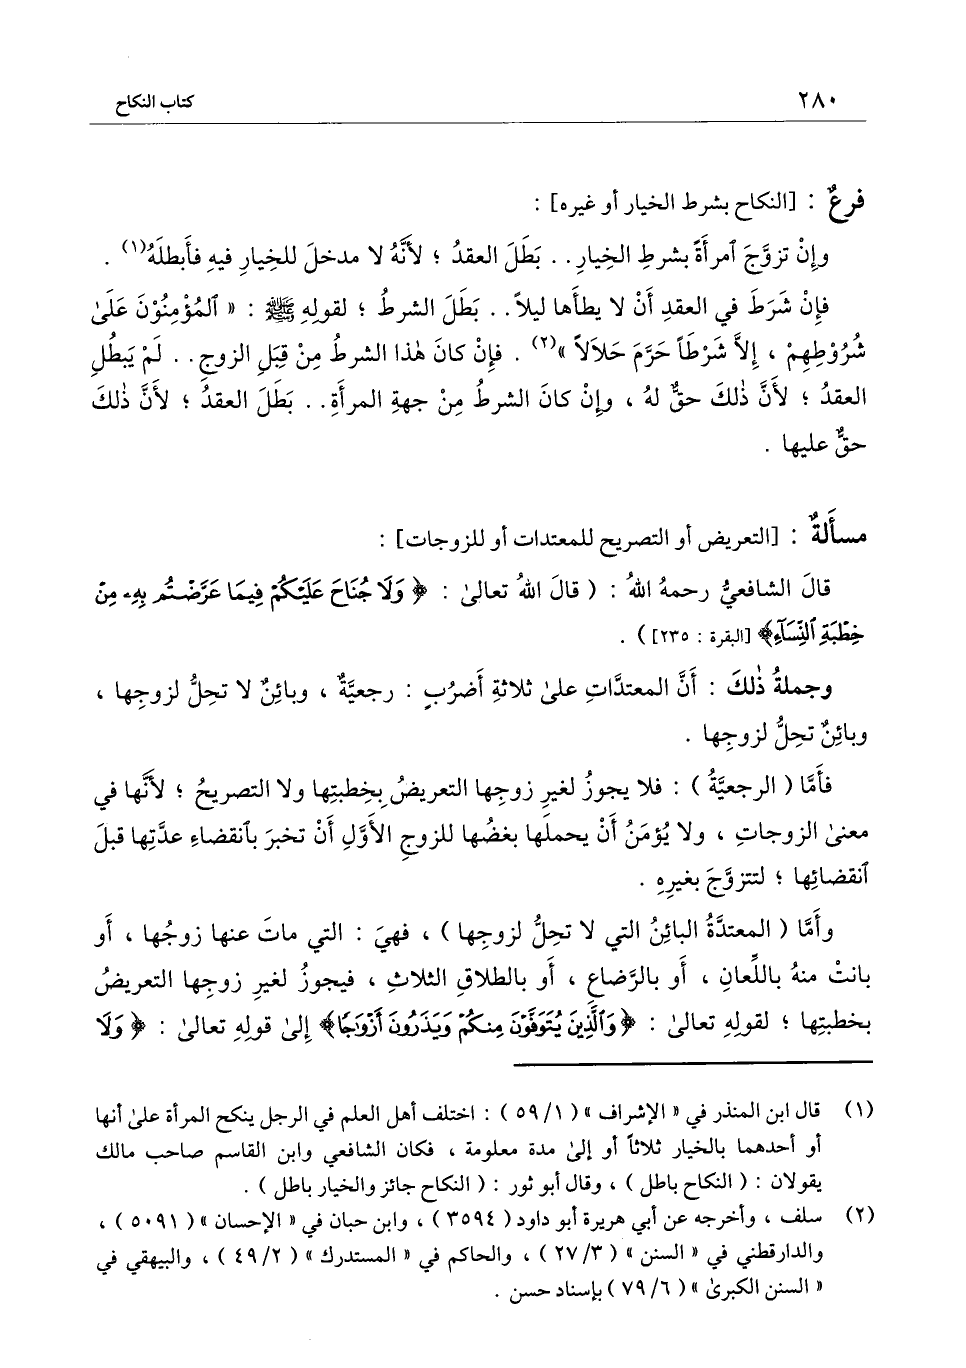 ٢٨٠ كتاب النكاح
فرعٌ : [النكاح بشرط الخيار أو غيره] :
وإنْ تزوَّجَ ٱمرأَةً بشرطِ الخِيارِ . . بَطَلَ العقدُ ؛ لأنَّهُ لا مدخلَ للخِيارِ فيهِ فأَبطلَهُ(١) .
فإنْ شَرَطَ في العقدِ أَنْ لا يطأَها ليلاً . . بَطَلَ الشرطُ ؛ لقولِهِ ﷺ : « ٱلمُؤْمِنُوْنَ عَلَىٰ
شُرُوْطِهِمْ ، إِلاَّ شَرْطَاً حَرَّمَ حَلاَلاً »(٢) . فإنْ كانَ هٰذا الشرطُ مِنْ قِبَلِ الزوجِ . . لَمْ يَبطُلِ
العقدُ ؛ لأَنَّ ذٰلكَ حقٌّ لهُ ، وإنْ كانَ الشرطُ مِنْ جهةِ المرأَةِ . . بَطَلَ العقدُ ؛ لأنَّ ذٰلكَ
حقٌّ عليها .
مسأَلةٌ : [التعريض أو التصريح للمعتدات أو للزوجات] :
قالَ الشافعيُّ رحمهُ اللهُ : ( قالَ اللهُ تعالىٰ : ﴿ وَلَا جُنَاحَ عَلَيْكُمْ فِيمَا عَرَّضْتُم بِهِۦ مِنْ
خِطْبَةِ ٱلنِّسَآءِ﴾ [البقرة : ٢٣٥] ) .
وجملةُ ذٰلكَ : أَنَّ المعتدَّاتِ علىٰ ثلاثةِ أَضرُبٍ : رجعيَّةٌ ، وبائِنٌ لا تحِلُّ لزوجِها ،
وبائِنٌ تحِلُّ لزوجِها .
فأَمَّا ( الرجعيَّةُ ) : فلا يجوزُ لغيرِ زوجِها التعريضُ بِخِطبتِها ولا التصريحُ ؛ لأَنَّها في
معنىٰ الزوجاتِ ، ولا يُؤمَنُ أَنْ يحملَها بغضُها للزوجِ الأَوَّلِ أَنْ تخبرَ بٱنقضاءِ عدَّتِها قبلَ
ٱنقضائِها ؛ لتتزوَّجَ بغيرِهِ .
وأَمَّا ( المعتدَّةُ البائِنُ التي لا تحِلُّ لزوجِها ) ، فهيَ : التي ماتَ عنها زوجُها ، أَو
بانتْ منهُ باللِّعانِ ، أَو بالرَّضاعِ ، أَو بالطلاقِ الثلاثِ ، فيجوزُ لغيرِ زوجِها التعريضُ
بخطبتِها ؛ لقولِهِ تعالىٰ : ﴿ وَٱلَّذِينَ يُتَوَفَّوْنَ مِنكُمْ وَيَذَرُونَ أَزْوَٰجًا﴾ إلىٰ قولِهِ تعالىٰ : ﴿ وَلَا
(١) قال ابن المنذر في « الإشراف » ( ١/ ٥٩ ) : اختلف أهل العلم في الرجل ينكح المرأة علىٰ أنها
أو أحدهما بالخيار ثلاثاً أو إلىٰ مدة معلومة ، فكان الشافعي وابن القاسم صاحب مالك
يقولان : ( النكاح باطل ) ، وقال أبو ثور : ( النكاح جائز والخيار باطل ) .
(٢) سلف ، وأخرجه عن أبي هريرة أبو داود ( ٣٥٩٤ ) ، وابن حبان في « الإحسان » ( ٥٠٩١ ) ،
والدارقطني في « السنن » ( ٣/ ٢٧ ) ، والحاكم في « المستدرك » ( ٢/ ٤٩ ) ، والبيهقي في
« السنن الكبرىٰ » ( ٦/ ٧٩ ) بإسناد حسن .